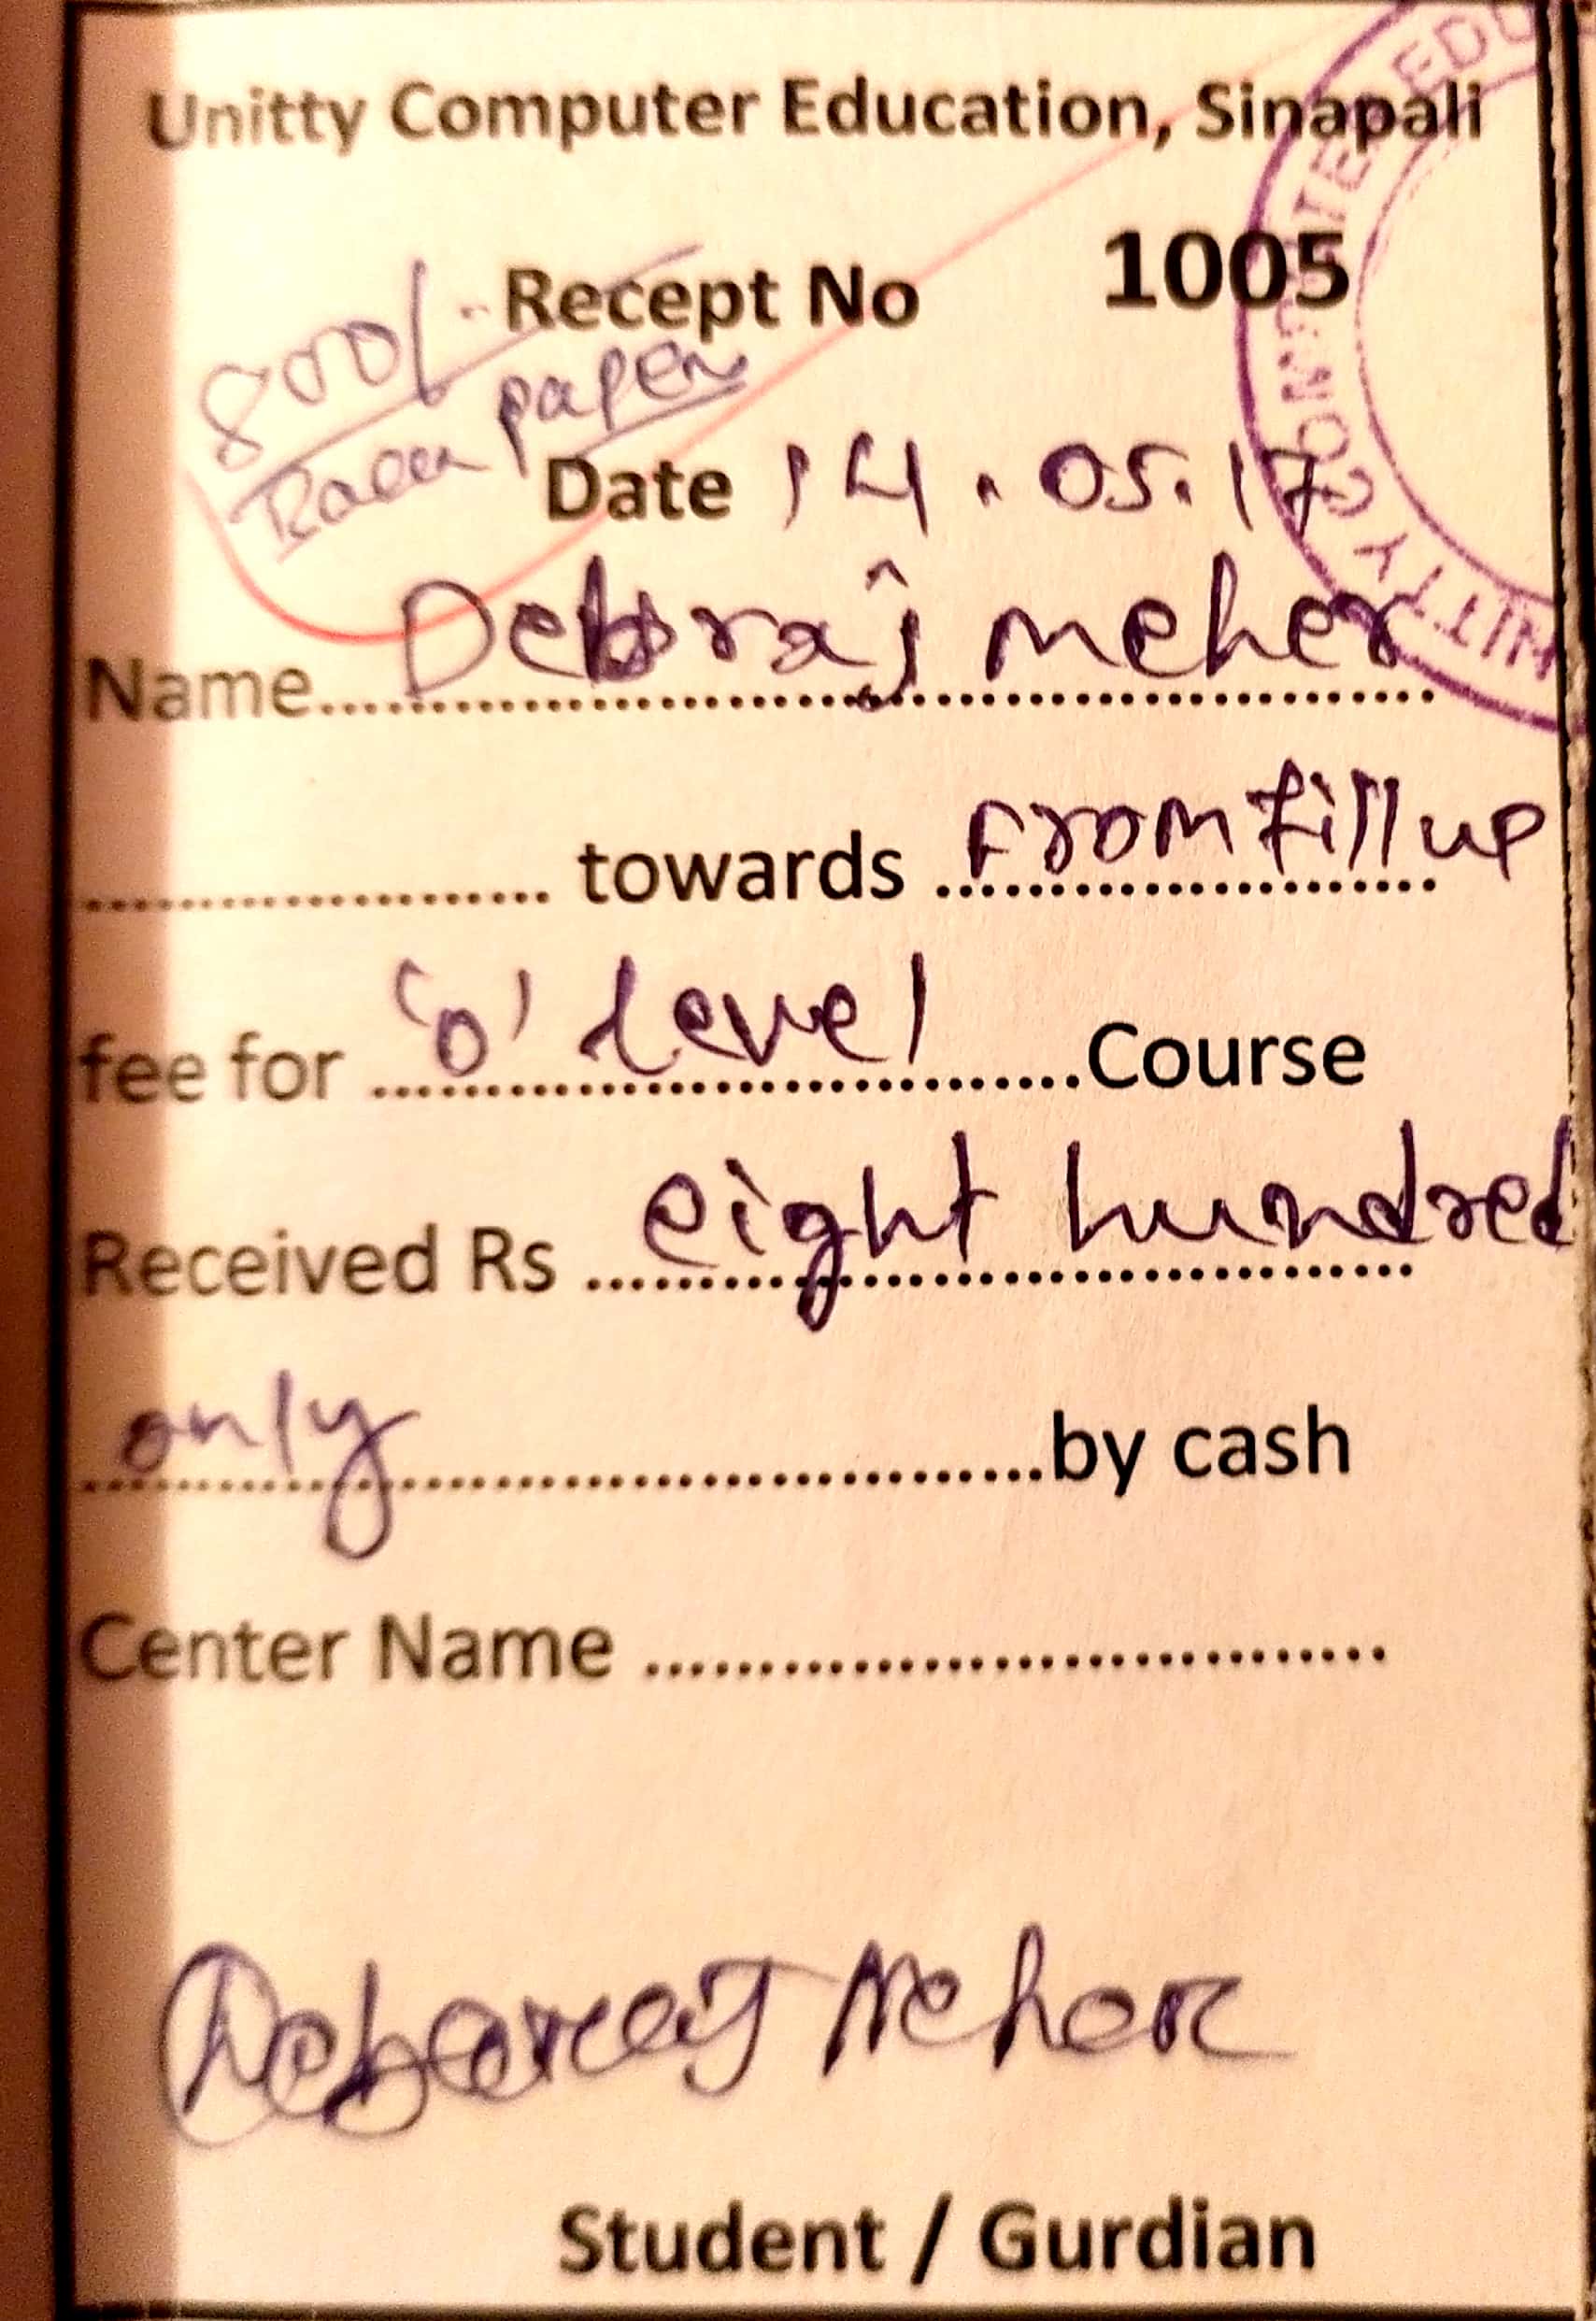 Unitty Computer Education, Sinapali
Recept No 1005
800/-
paper
Date 14.05.17
Name.......... Debraj meher
.......... towards From fill up
fee for 'o' level ..........Course
Received Rs eight hundred
only ..........by cash
Center Name ..........
Debaraj Meher
Student / Gurdian
UNITTY COMPUTER EDU